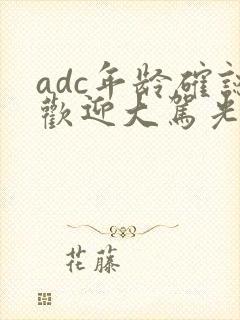 adc年龄確認
歡迎大駕光
花藤